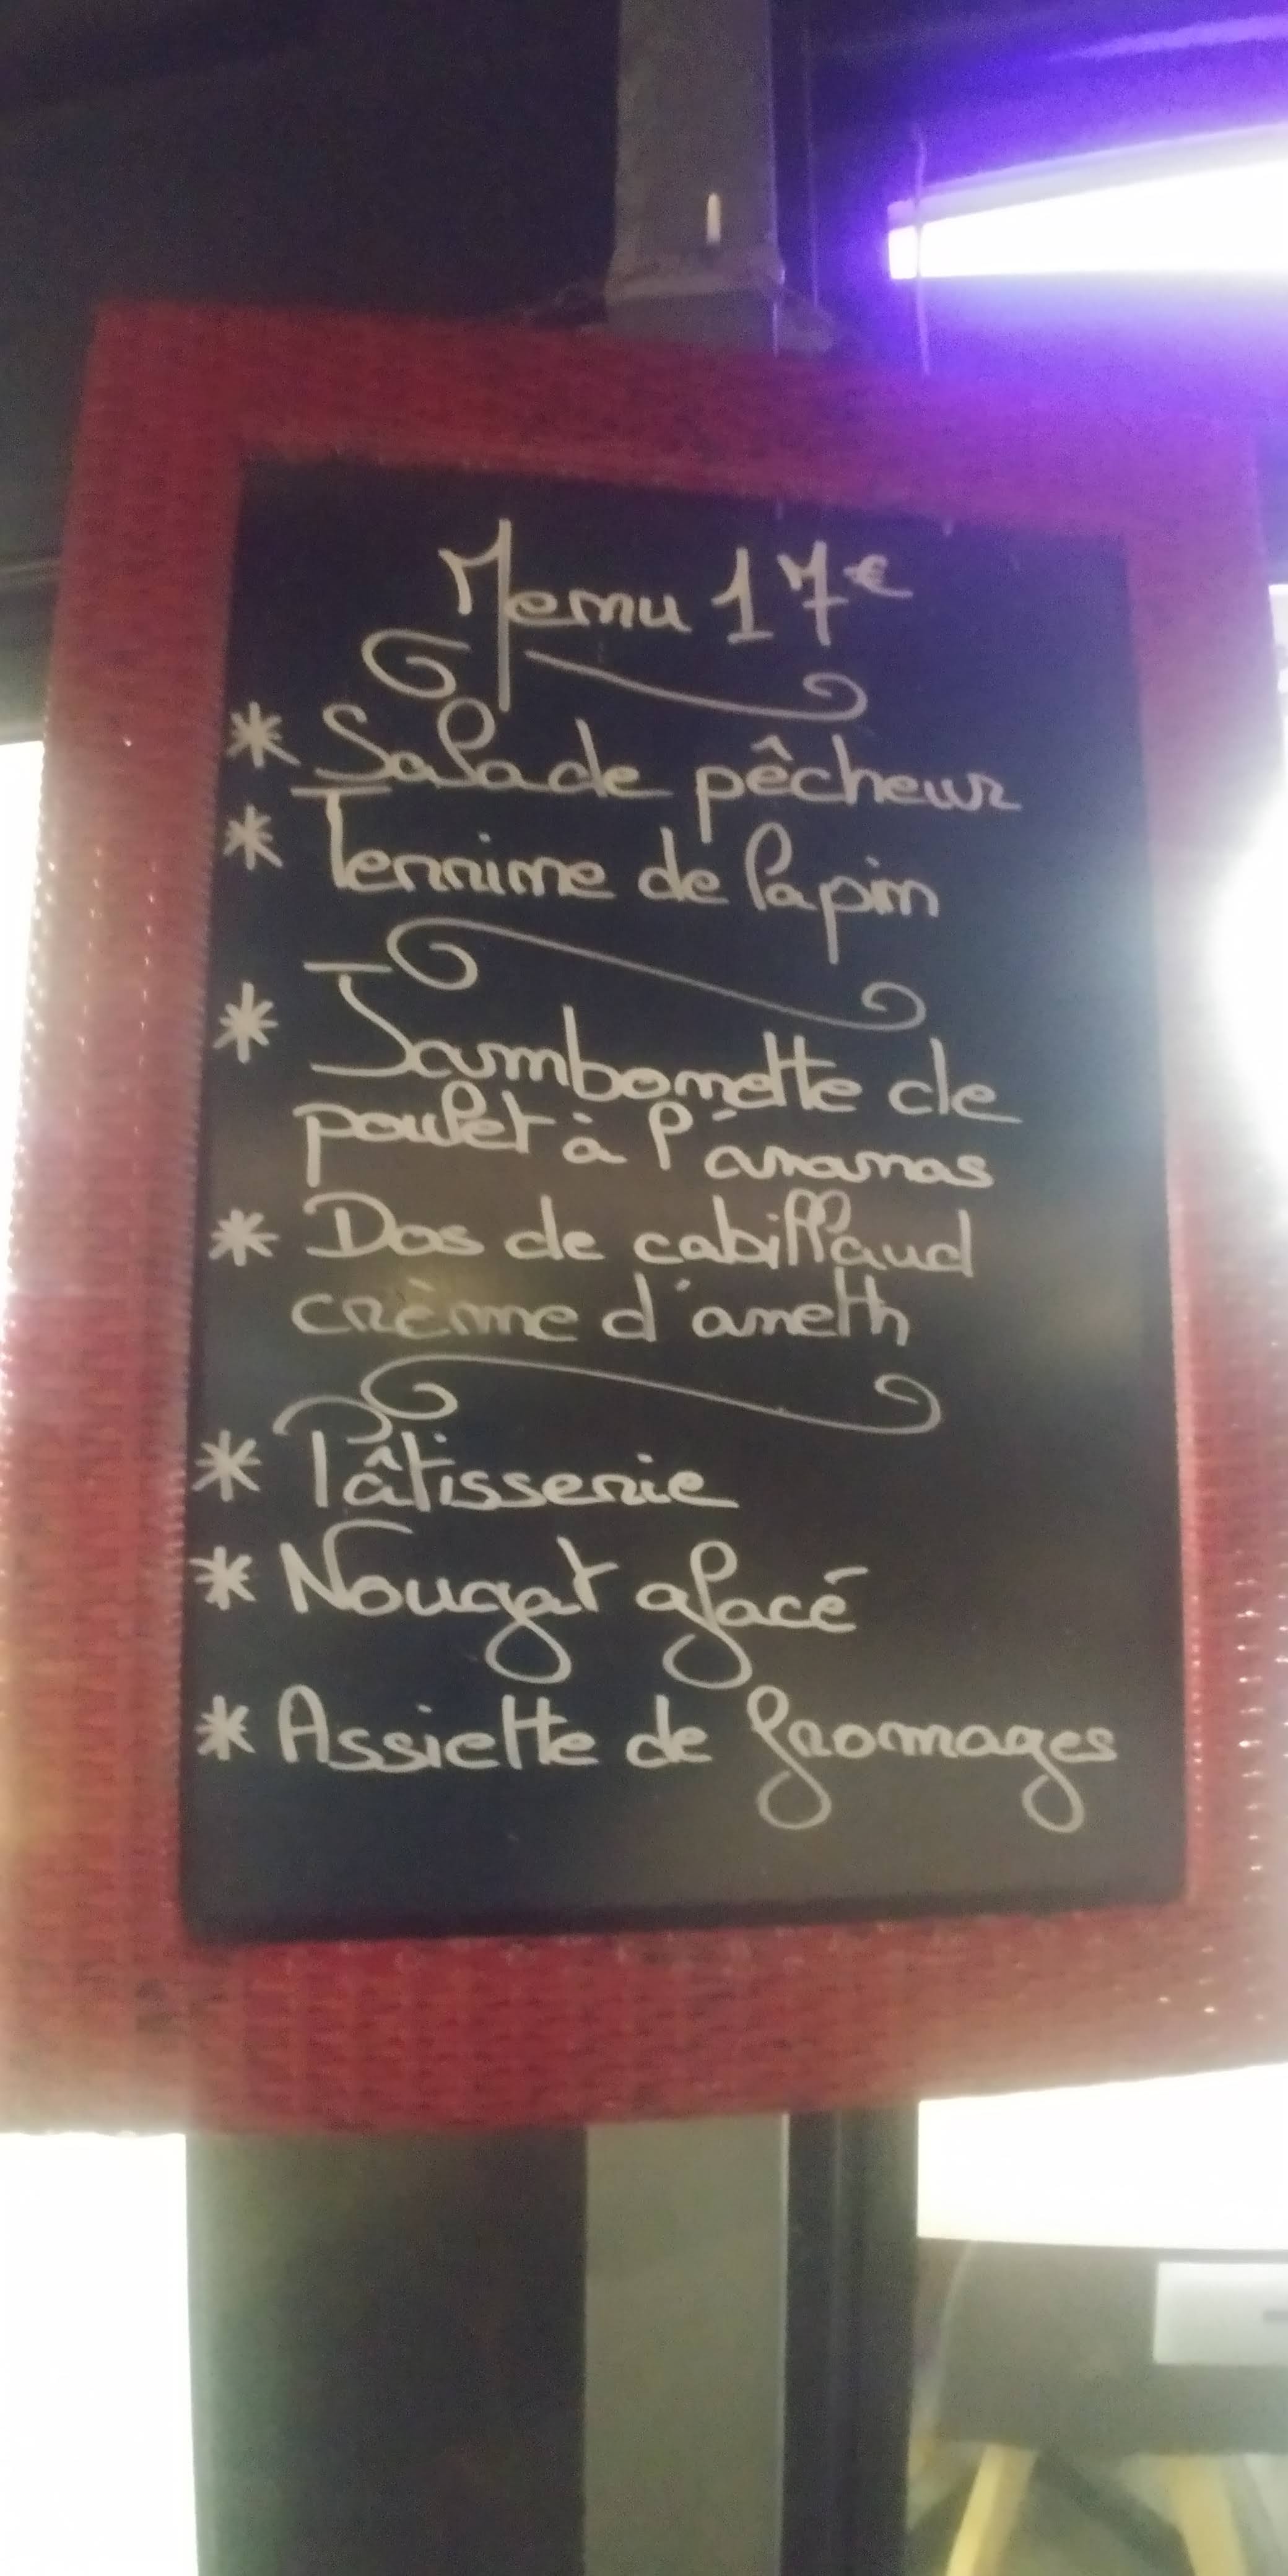 Menu 17€
* Salade pêcheur
* Terrine de lapin
* Jambonette de
poulet à l'ananas
* Dos de cabillaud
crème d'aneth
* Pâtisserie
* Nougat glacé
* Assiette de fromages